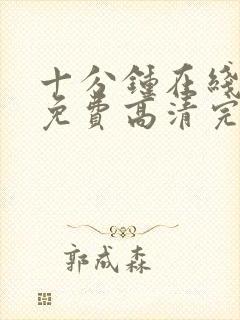 十分鍾在綫
免費高清完
郭成森